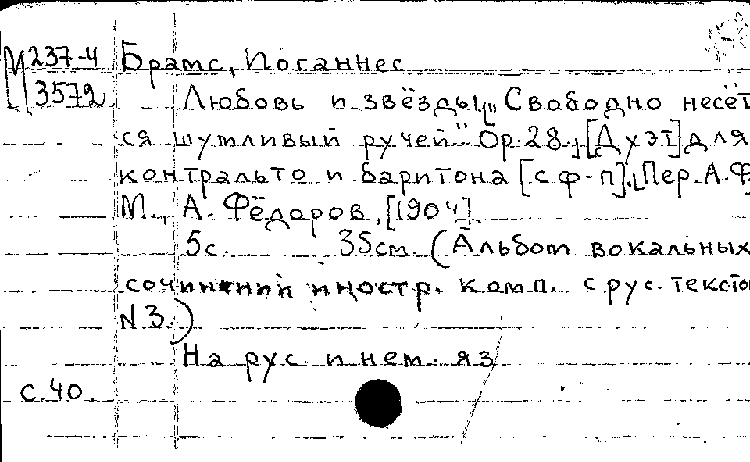 М 237-4 Брамс, Иоганнес
3572
Любовь и звёзды. "Свободно несёт
ся шутливый ручей" Op. 28. [Дуэт] для
контральто и баритона [с ф-п]. [Пер. А.Ф
М., А. Фёдоров, [1904].
5с. 35см. (Альбом вокальных
сочинений иностр. комп. с рус. тексто
N 3.)
На рус. и нем. яз.
с.40.